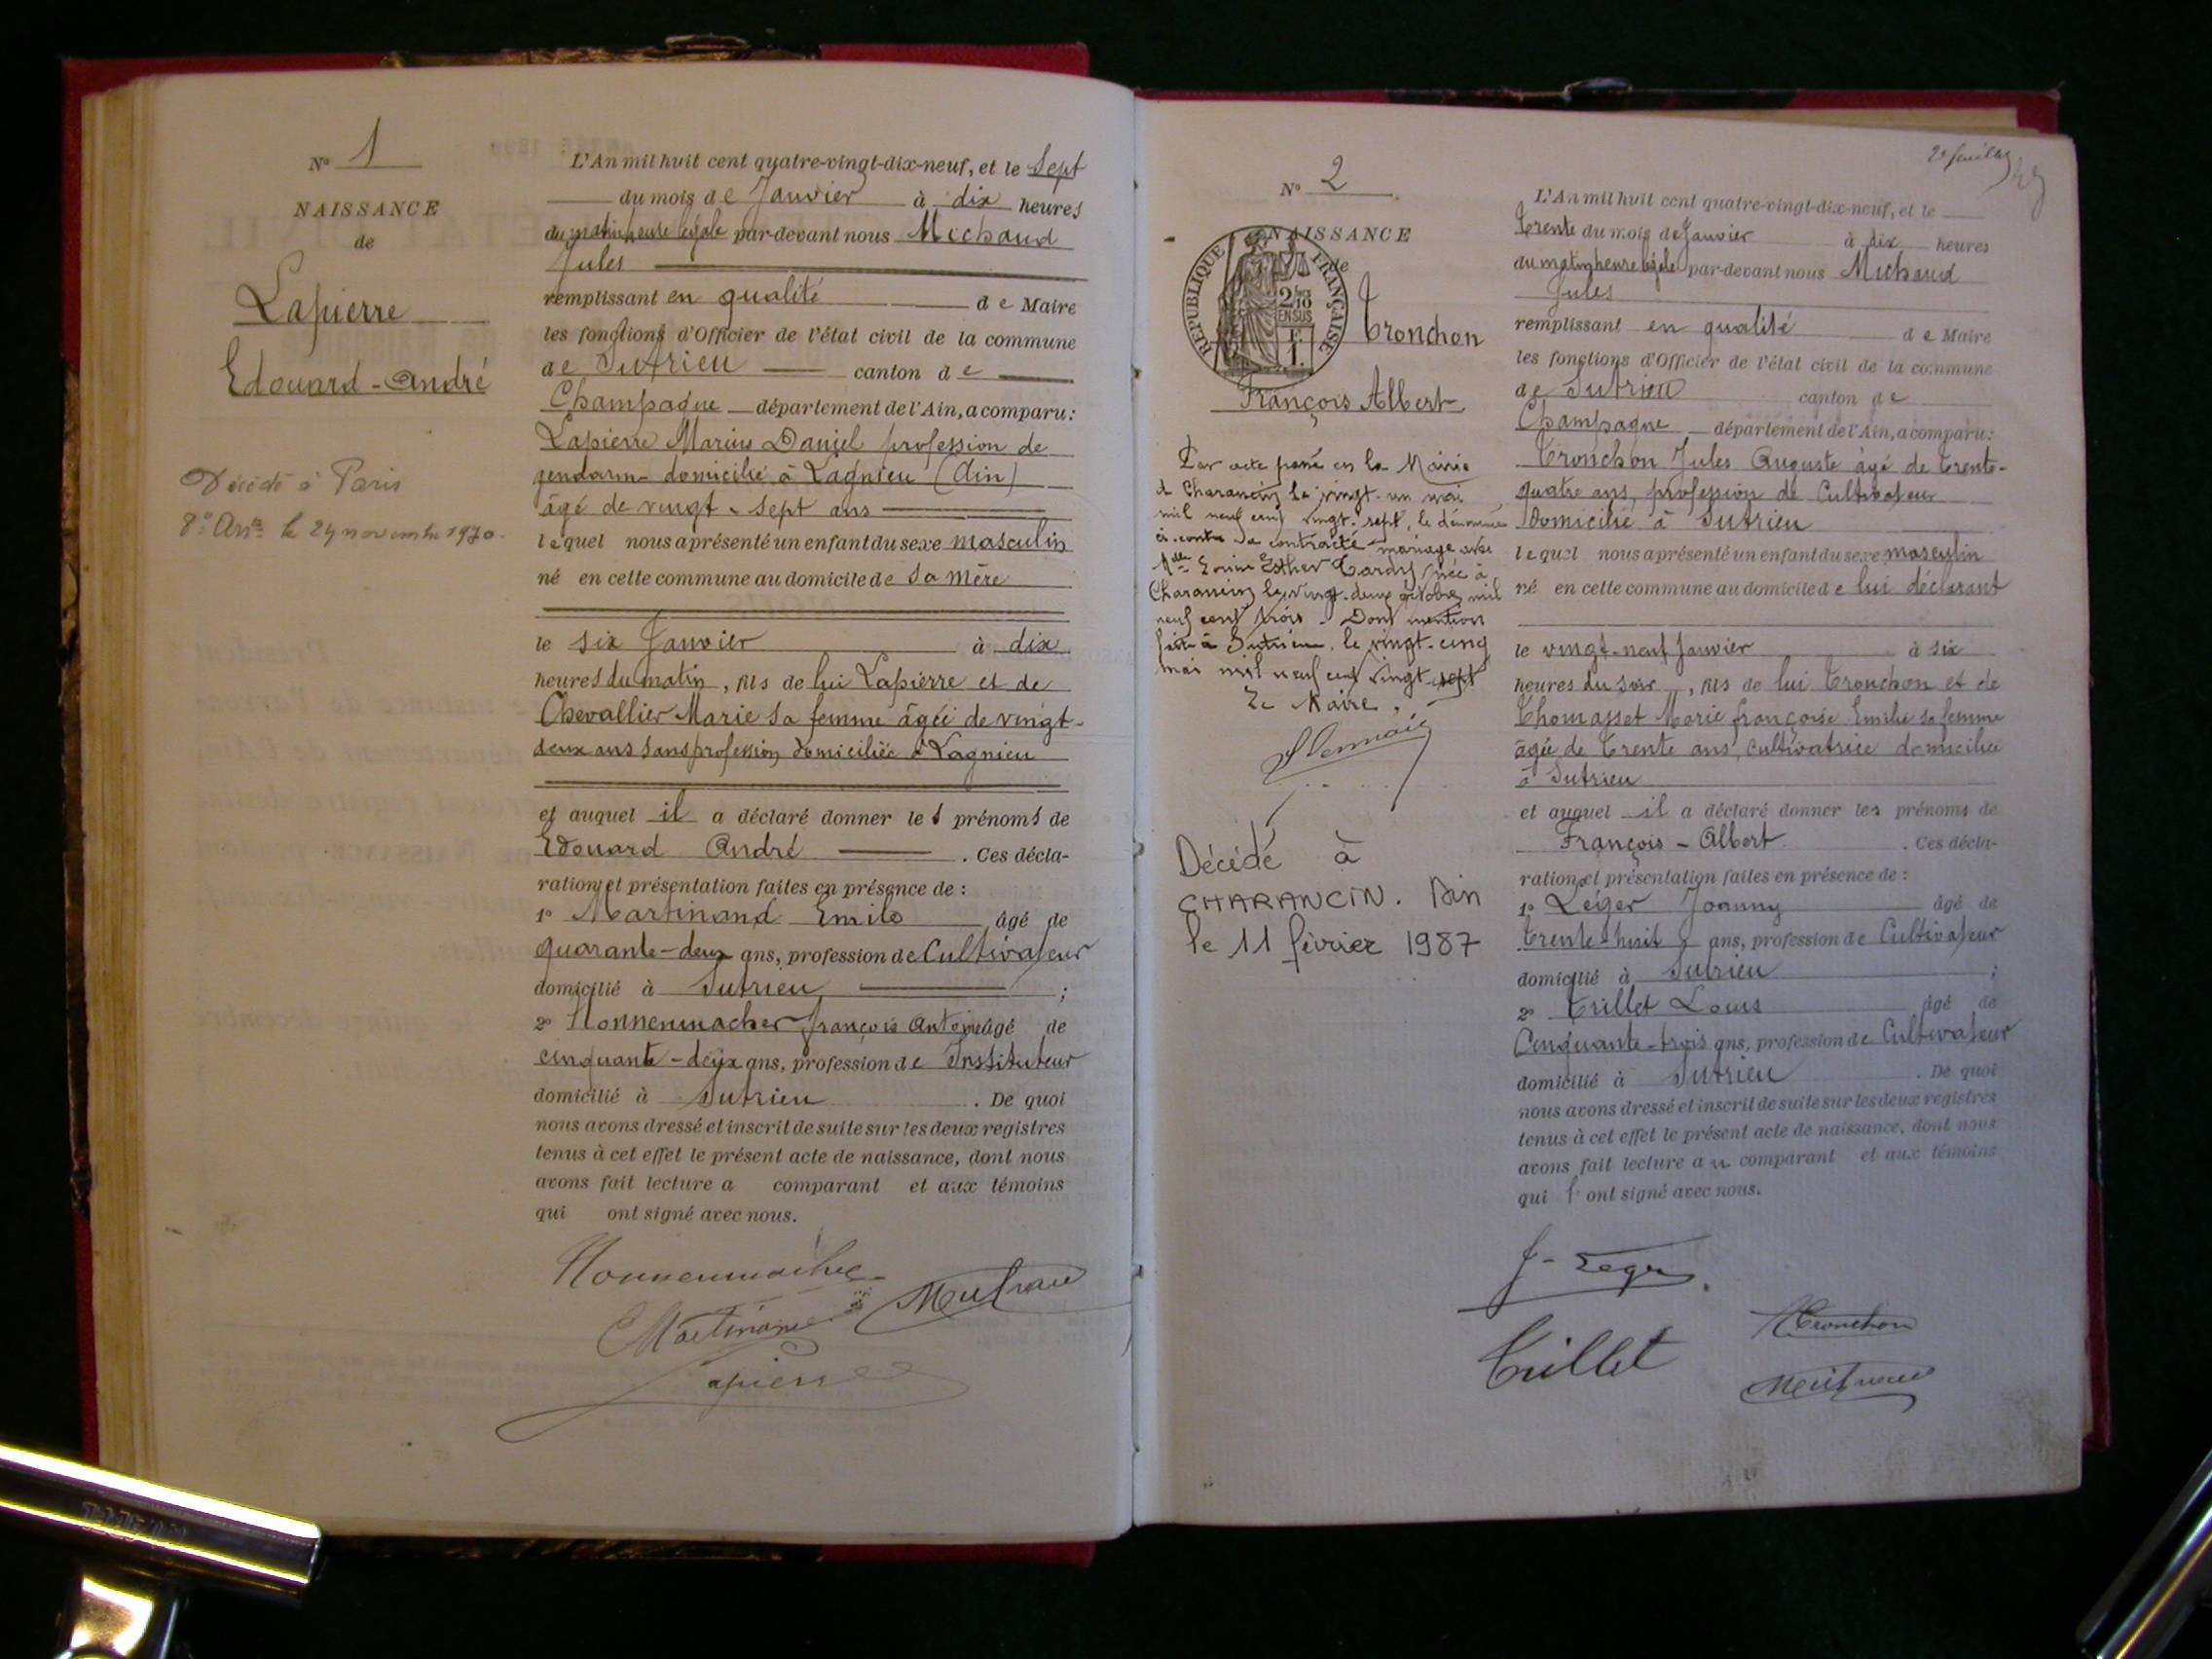 N° 1
NAISSANCE
de
Lapierre
Edouard-André
Décédé à Paris
8e Arrt le 24 novembre 1970.
L'An mil huit cent quatre-vingt-dix-neuf, et le sept
du mois de Janvier à dix heures
du matin heure légale par-devant nous Michaud
Jules
remplissant en qualité de Maire
les fonctions d'Officier de l'état civil de la commune
de Sutrieu canton de
Champagne département de l'Ain, a comparu:
Lapierre Marius Daniel profession de
gendarme domicilié à Lagnieu (Ain)
âgé de vingt-sept ans
lequel nous a présenté un enfant du sexe masculin
né en cette commune au domicile de sa mère
le six Janvier à dix
heures du matin, fils de lui Lapierre et de
Chevallier Marie sa femme âgée de vingt-
deux ans sans profession domiciliée à Lagnieu
et auquel il a déclaré donner les prénoms de
Edouard André. Ces décla-
ration et présentation faites en présence de :
1° Martinand Emile âgé de
quarante-deux ans, profession de Cultivateur
domicilié à Sutrieu ;
2° Nonnenmacher françois Antoine âgé de
cinquante-deux ans, profession de Instituteur
domicilié à Sutrieu . De quoi
nous avons dressé et inscrit de suite sur les deux registres
tenus à cet effet le présent acte de naissance, dont nous
avons fait lecture a comparant et aux témoins
qui ont signé avec nous.
Nonnenmacher
Martinand
Lapierre
2e feuillet
N° 2
NAISSANCE
de
RÉPUBLIQUE FRANÇAISE
2/10
EN SUS
Tronchon
François Albert
Par acte passé en la Mairie
de Charancin le vingt-un mai
mil neuf cent vingt-sept, le dénommé
ci-contre a contracté mariage avec
Mlle Esther née à
Charancin le vingt-deux octobre mil
neuf cent trois. Dont mention
faite à Sutrieu, le vingt-cinq
mai mil neuf cent vingt-sept
Le Maire,
Décédé à
CHARANCIN. Ain
le 11 février 1987
L'An mil huit cent quatre-vingt-dix-neuf, et le
trente du mois de Janvier à dix heures
du matin heure légale par-devant nous Michaud
Jules
remplissant en qualité de Maire
les fonctions d'Officier de l'état civil de la commune
de Sutrieu canton de
Champagne département de l'Ain, a comparu:
Tronchon Jules Auguste âgé de trente-
quatre ans, profession de Cultivateur
domicilié à Sutrieu
lequel nous a présenté un enfant du sexe masculin
né en cette commune au domicile de lui déclarant
le vingt-neuf Janvier à six
heures du soir, fils de lui Tronchon et de
Thomasset Marie françoise Emilie sa femme
âgée de trente ans, cultivatrice domiciliée
à Sutrieu
et auquel il a déclaré donner les prénoms de
François-Albert. Ces décla-
ration et présentation faites en présence de :
1° Léger Joanny âgé de
trente-huit ans, profession de Cultivateur
domicilié à Sutrieu ;
2° Trillet Louis âgé de
Cinquante-trois ans, profession de Cultivateur
domicilié à Sutrieu . De quoi
nous avons dressé et inscrit de suite sur les deux registres
tenus à cet effet le présent acte de naissance, dont nous
avons fait lecture au comparant et aux témoins
qui l'ont signé avec nous.
J-Leger
Trillet
Tronchon